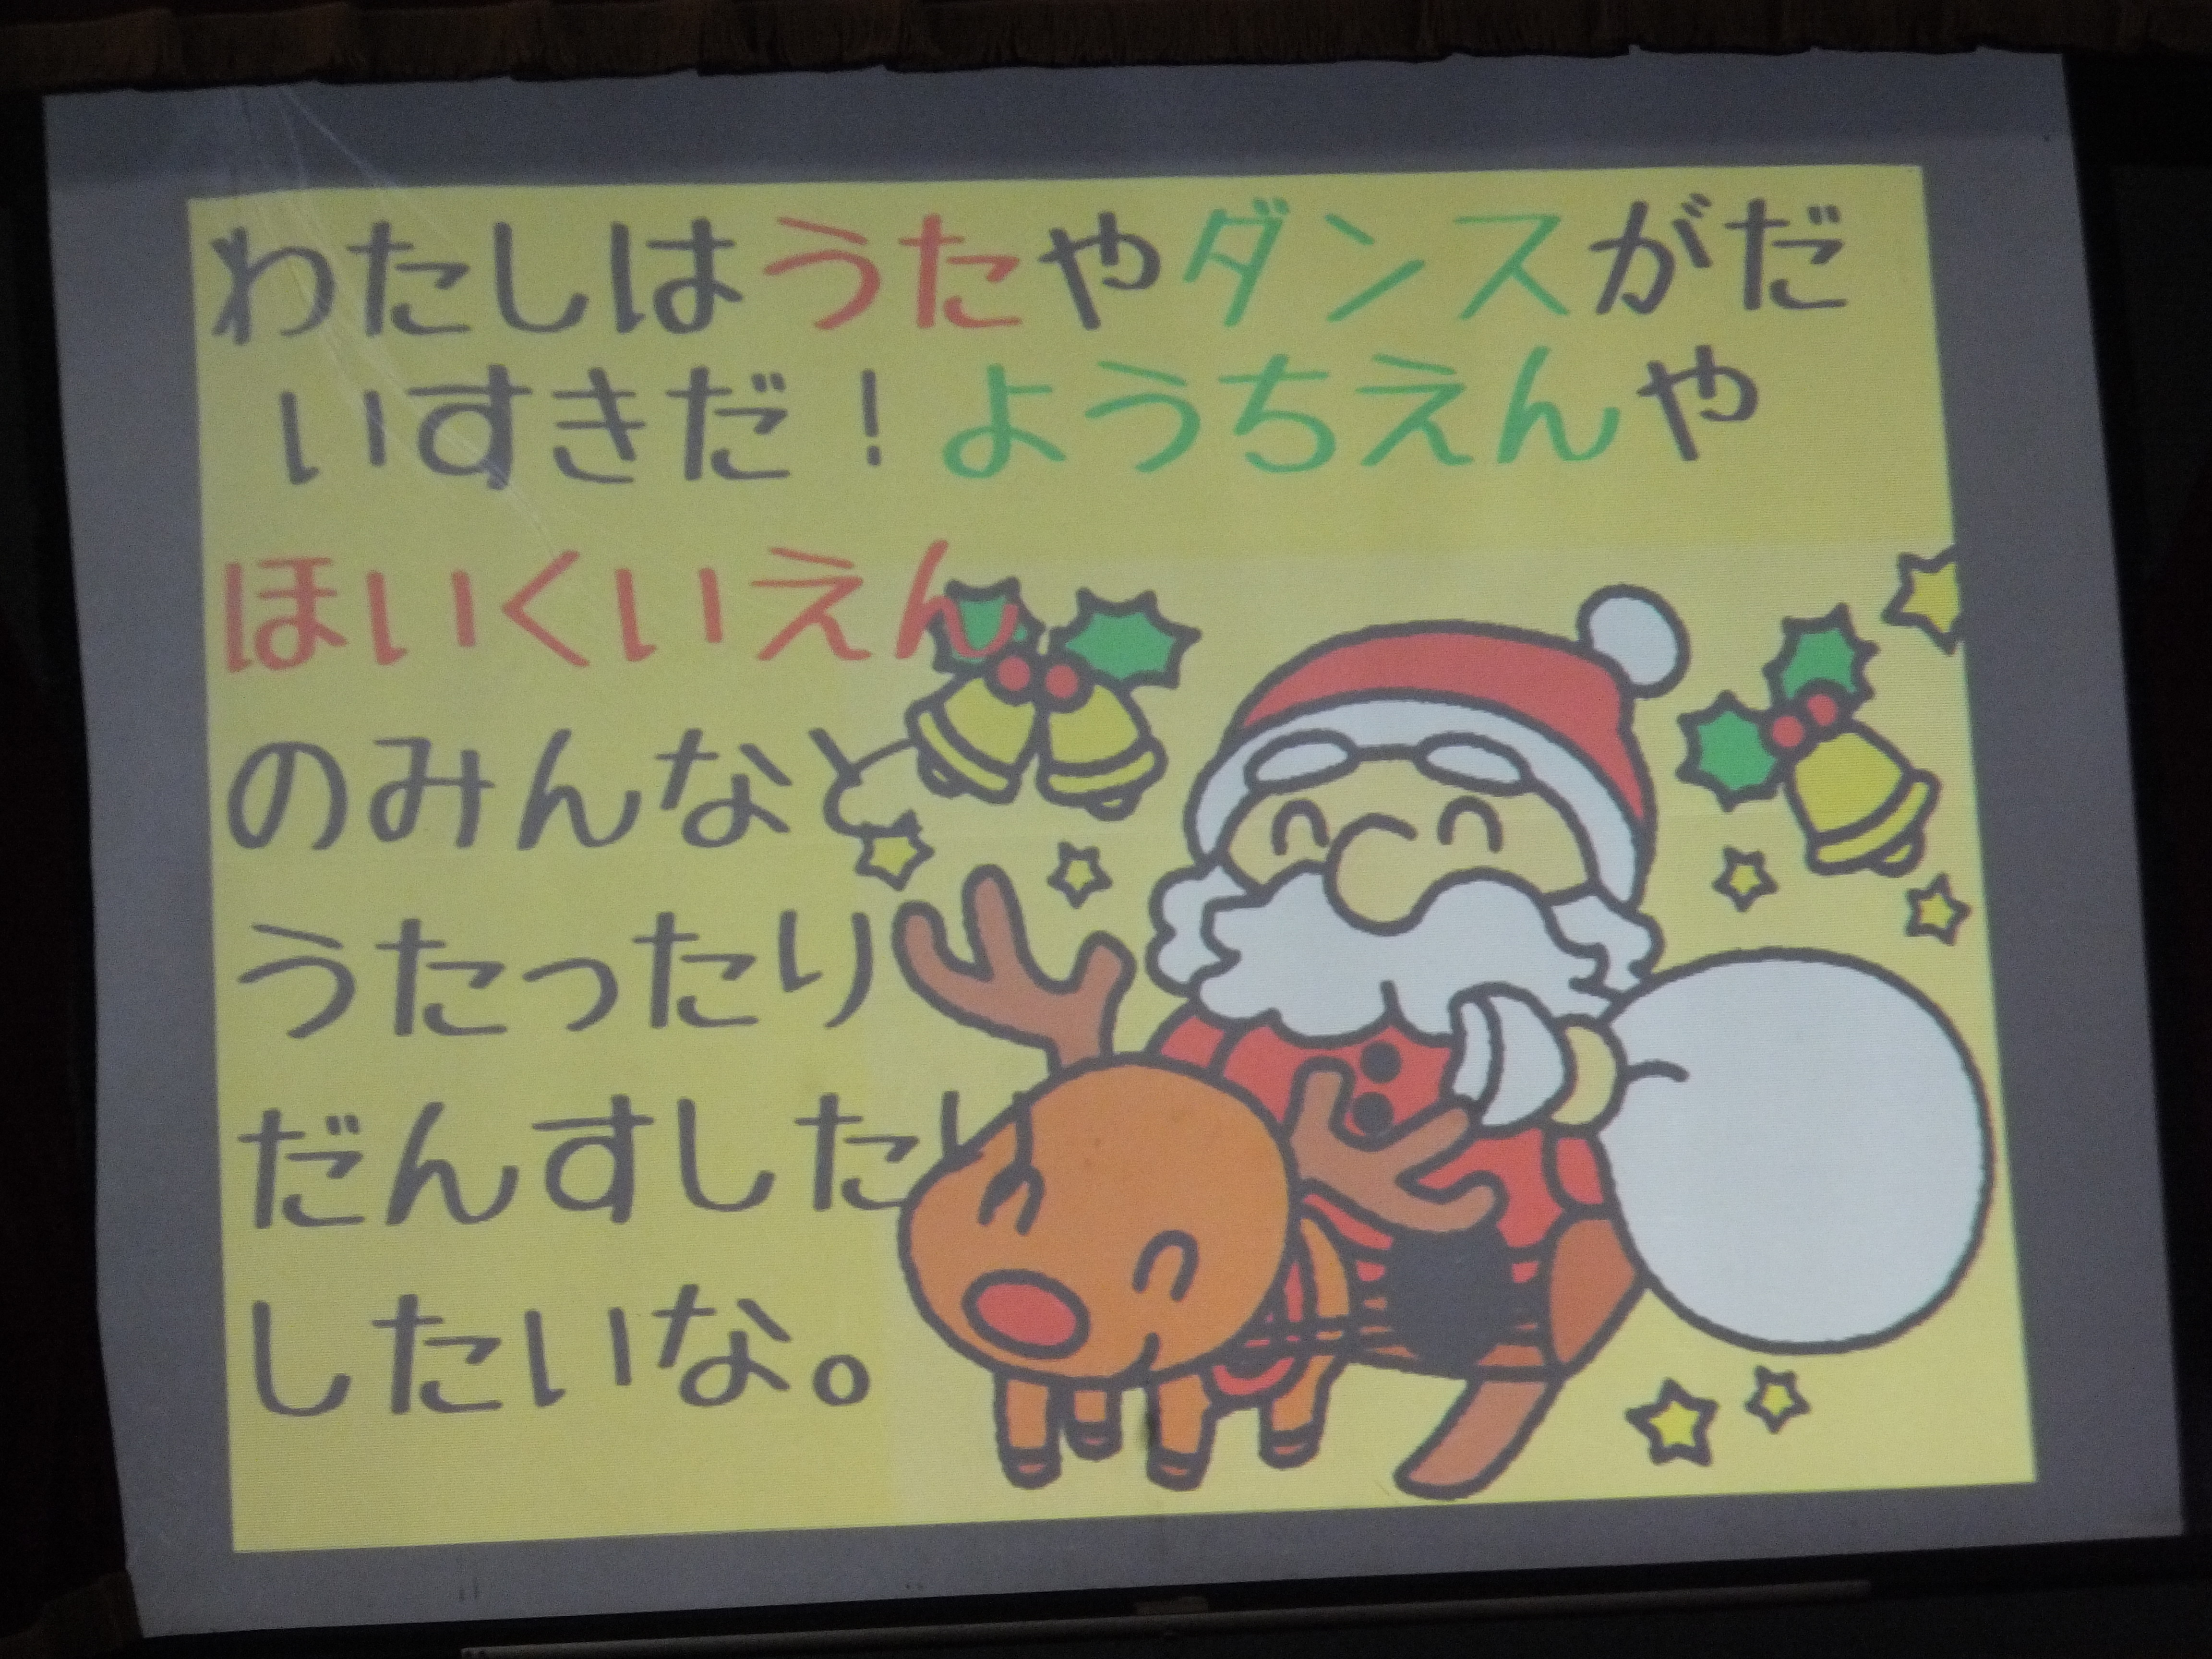 わたしはうたやダンスがだ
いすきだ！ようちえんや
ほいくいえん
のみんなと
うたったり
だんすしたり
したいな。